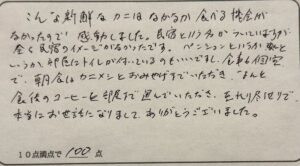 こんな新鮮なカニはなかなか食べる機会が
なかったので感動しました。民宿という名がついていますが
全く民宿のイメージがなかったです。ペンションというか
というか、部屋にトイレが付いているのもいいですし、食事も個室
で、朝食はカニメシとおみやげまでいただき、なんと
食後のコーヒーを部屋まで運んでいただき、至れり尽せりで
本当にお世話になりました。ありがとうございました。
10点満点で 100 点